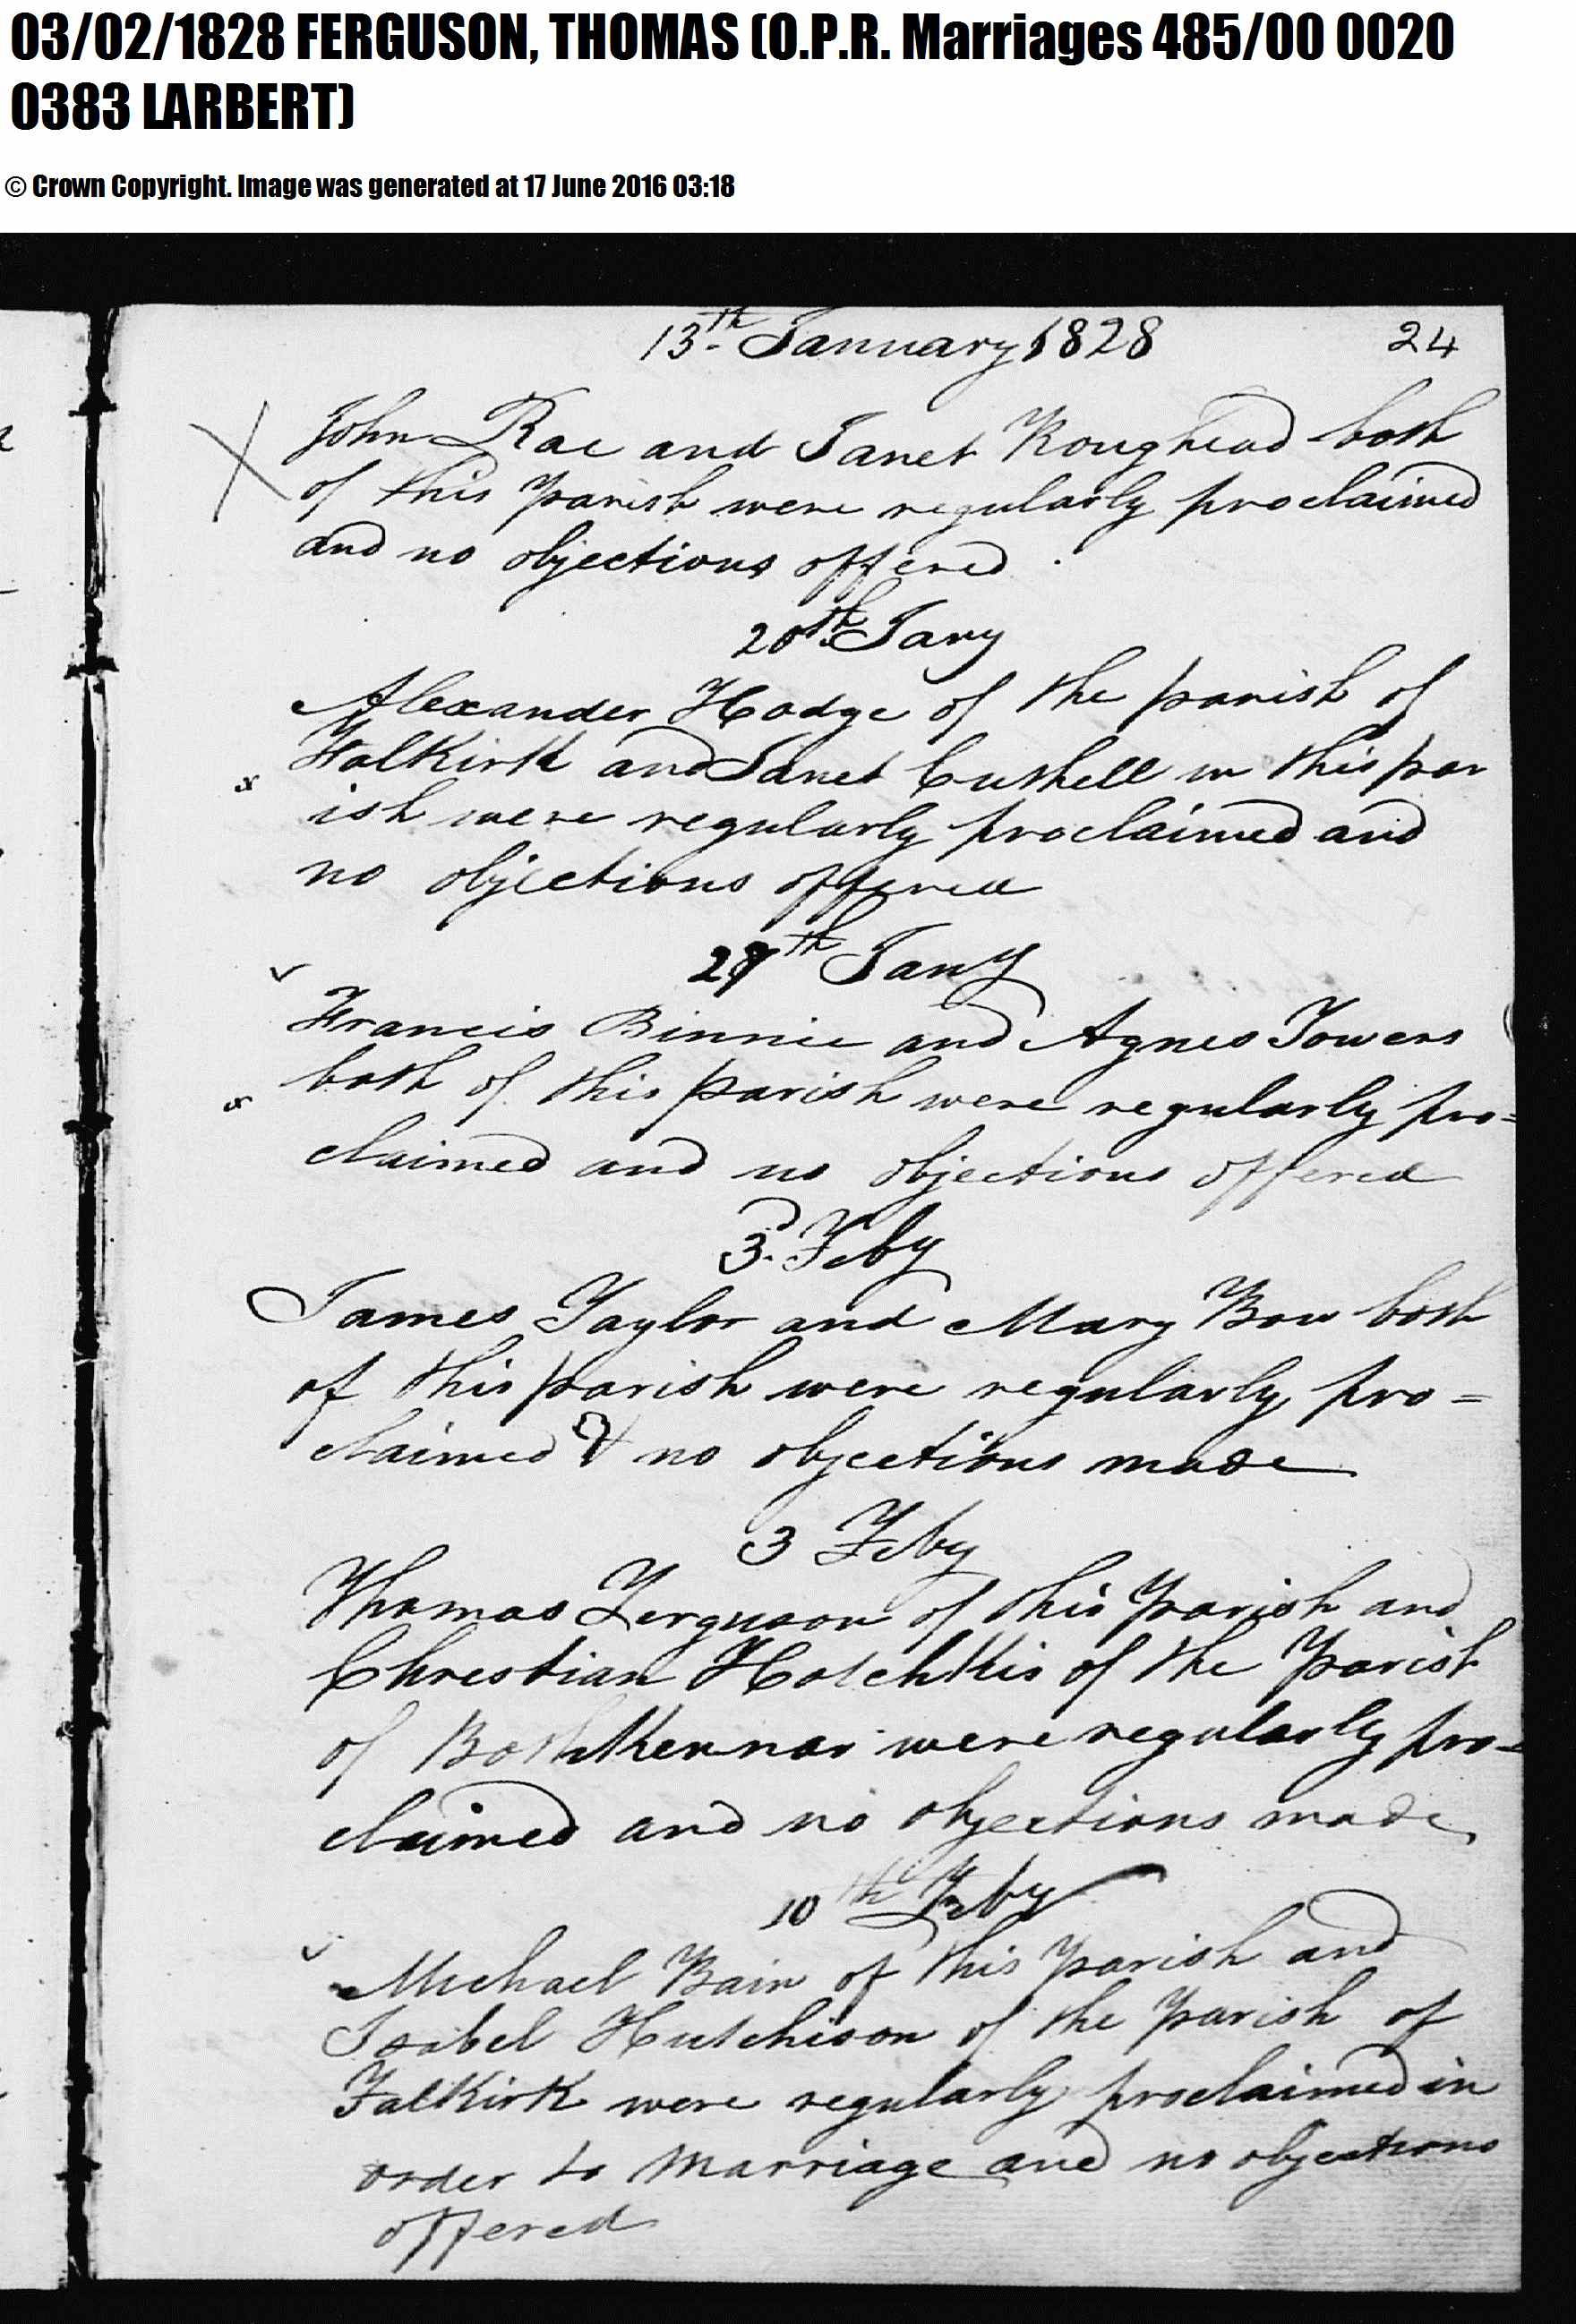 03/02/1828 FERGUSON, THOMAS (O.P.R. Marriages 485/00 0020
0383 LARBERT)
© Crown Copyright. Image was generated at 17 June 2016 03:18
13th January 1828 24
John Rae and Janet Roughead both
of this parish were regularly proclaimed
and no objections offered.
20th Jany
Alexander Hodge of the parish of
Falkirk and Janet Cuthell in this par
ish were regularly proclaimed and
no objections offered
27th Jany
Francis Binnie and Agnes Towers
both of this parish were regularly pro=
claimed and no objections offered
3d Feby
James Taylor and Mary Bow both
of this parish were regularly pro=
claimed & no objections made
3 Feby
Thomas Ferguson of this Parish and
Christian Hotchkis of the Parish
of Bothkennar were regularly pro=
claimed and no objections made
10th Feby
Michael Bain of this Parish and
Isabel Hutchison of the Parish of
Falkirk were regularly proclaimed in
order to Marriage and no objections
offered